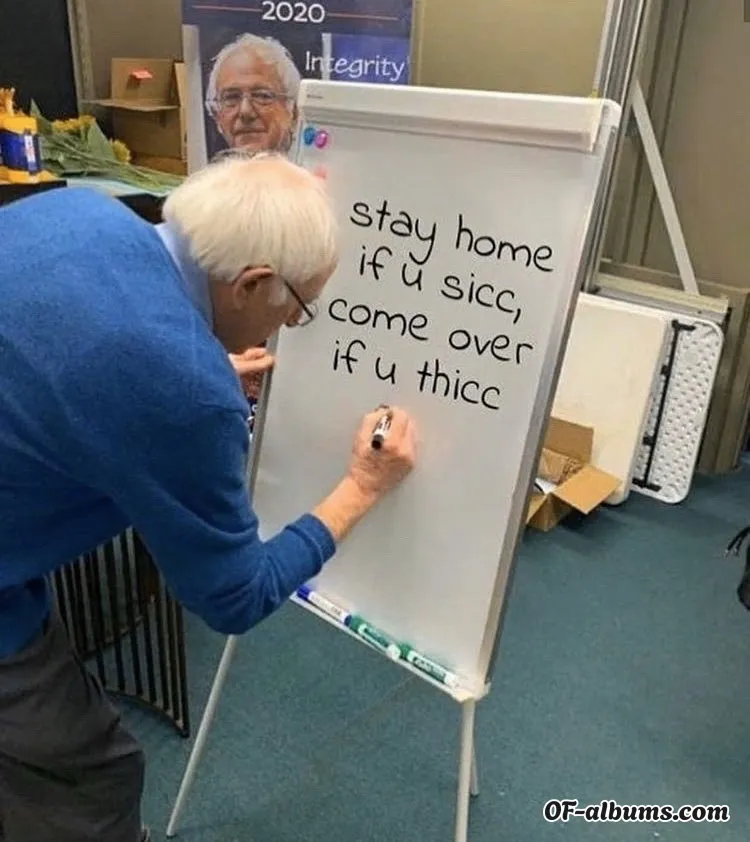 2020
Integrity
stay home
if u sicc,
come over
if u thicc
OF-albums.com